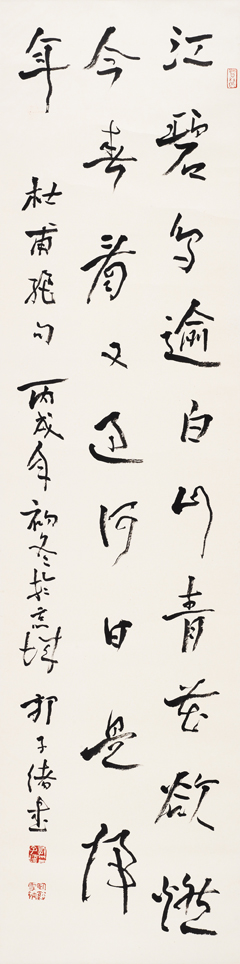 江碧鸟逾白山青花欲燃
今春看又过何日是归
年
杜甫绝句 丙戌年初冬于京城 郭子绪书